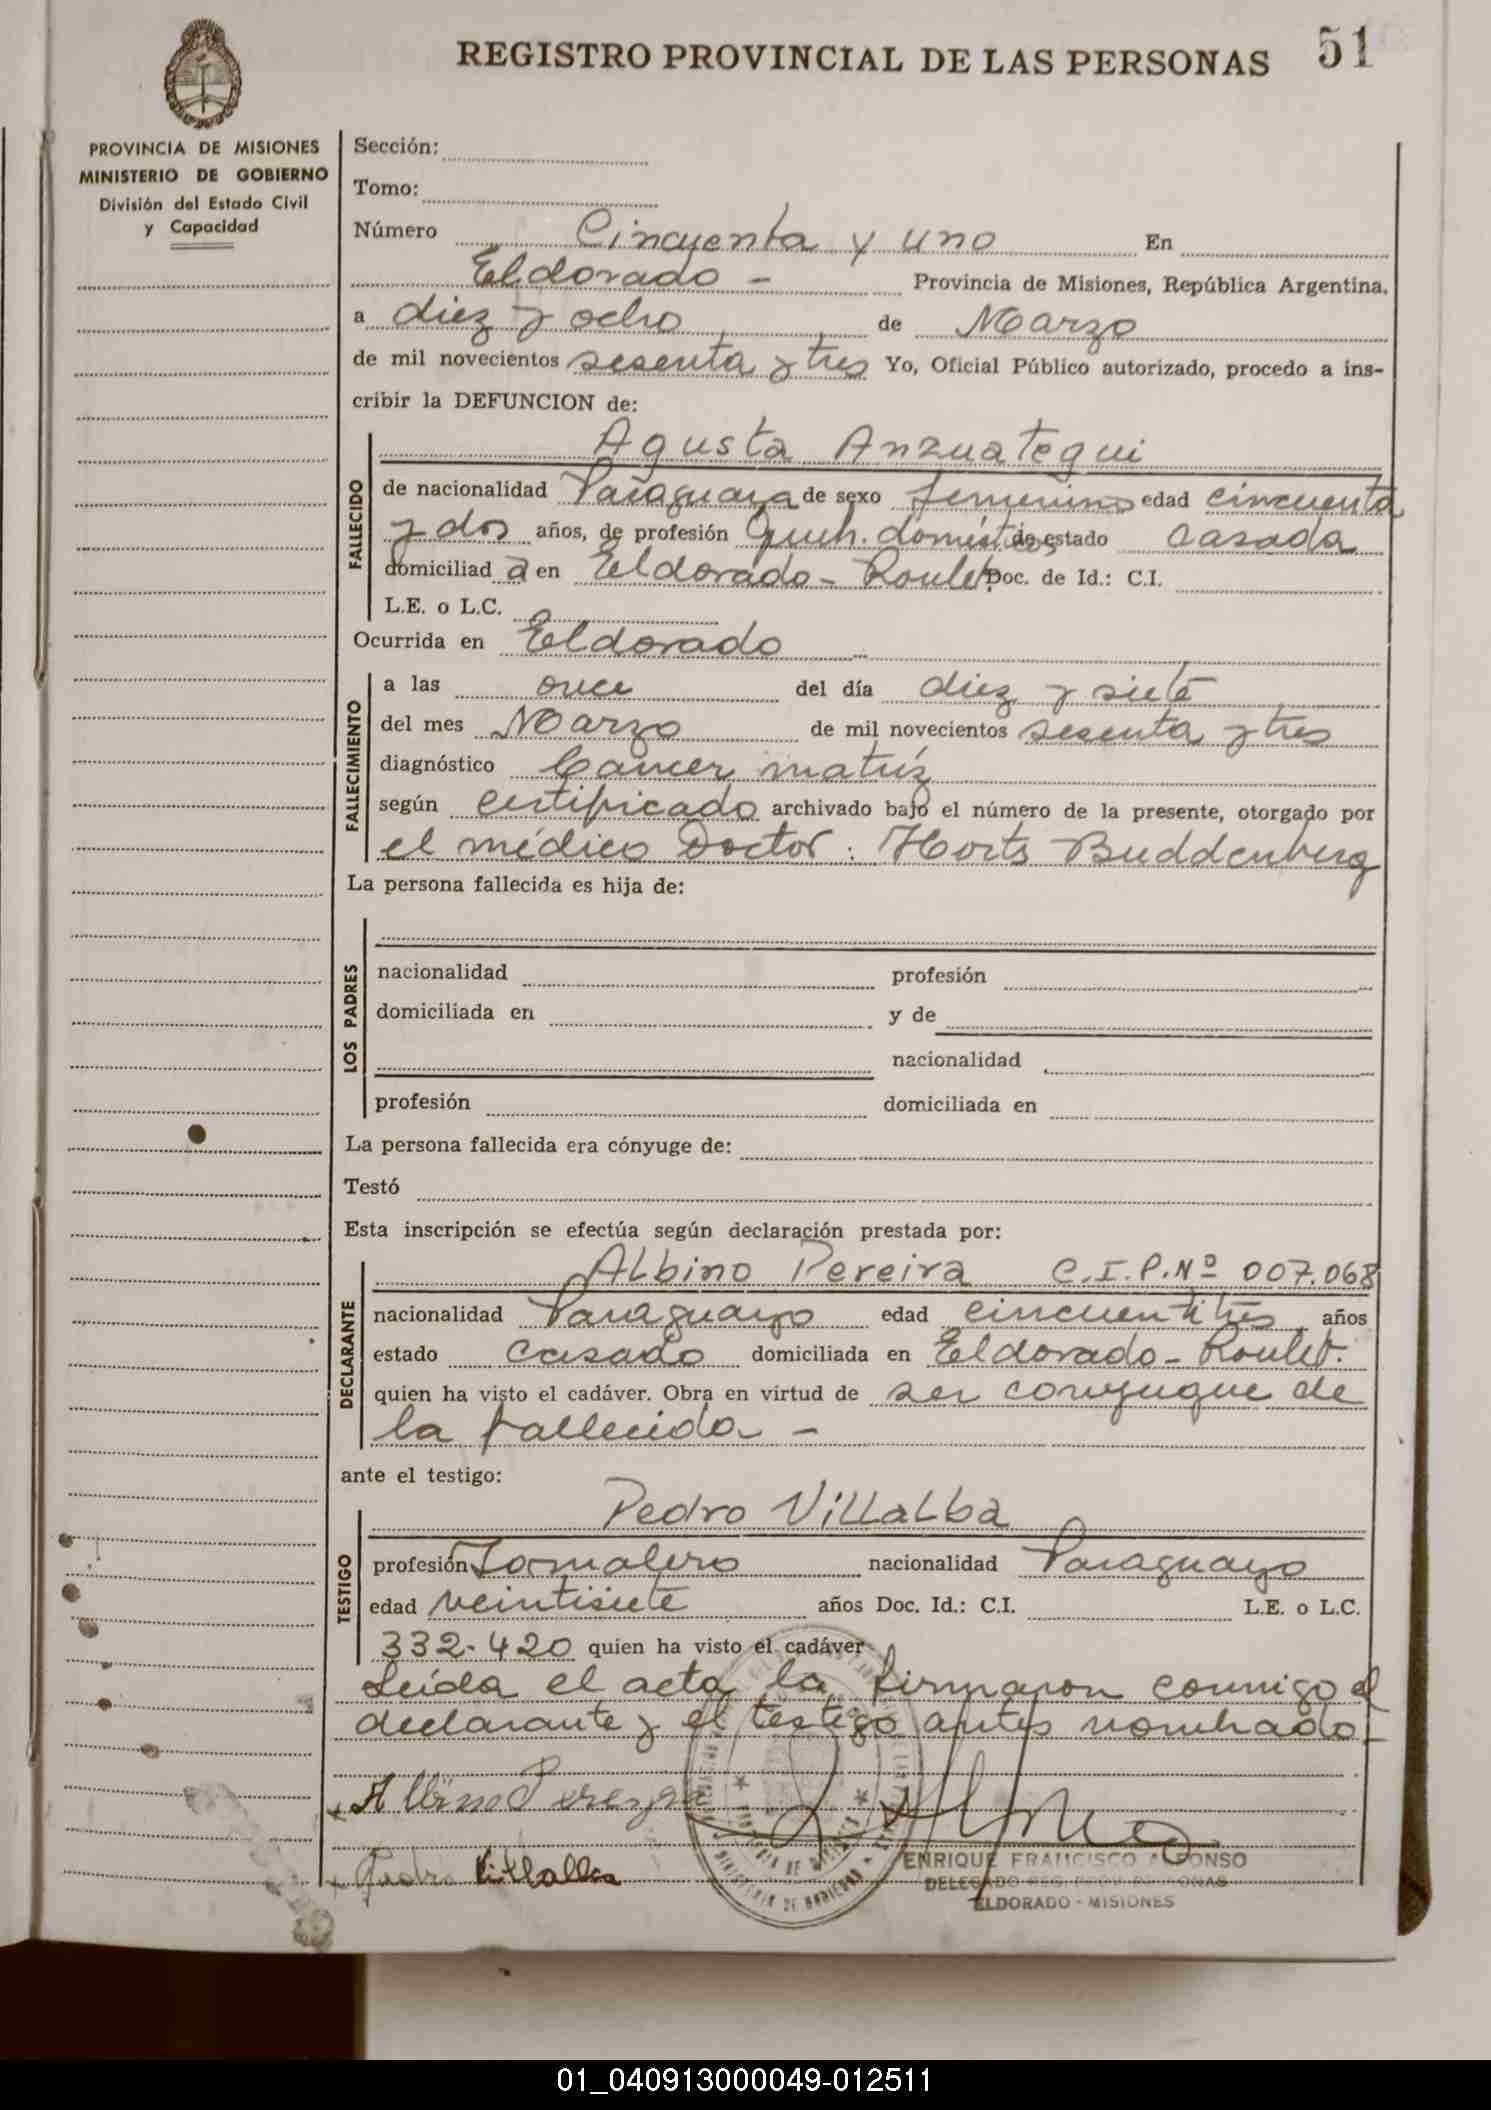 REGISTRO PROVINCIAL DE LAS PERSONAS 51
PROVINCIA DE MISIONES
MINISTERIO DE GOBIERNO
División del Estado Civil
y Capacidad
Sección:
Tomo:
Número Cincuenta y uno En
Eldorado - Provincia de Misiones, República Argentina,
a diez y ocho de Marzo
de mil novecientos sesenta y tres Yo, Oficial Público autorizado, procedo a ins-
cribir la DEFUNCION de:
FALLECIDO
Agusta Anzuategui
de nacionalidad Paraguaya de sexo femenino edad cincuenta
y dos años, de profesión Queh. domésticos de estado casada
domiciliad a en Eldorado - Roulet. Doc. de Id.: C.I.
L.E. o L.C.
Ocurrida en Eldorado
FALLECIMIENTO
a las once del día diez y siete
del mes Marzo de mil novecientos sesenta y tres
diagnóstico Cancer matríz
según certificado archivado bajo el número de la presente, otorgado por
el médico Doctor: Horts Buddenberg
La persona fallecida es hija de:
LOS PADRES
nacionalidad profesión
domiciliada en y de
nacionalidad
profesión domiciliada en
La persona fallecida era cónyuge de:
Testó
Esta inscripción se efectúa según declaración prestada por:
DECLARANTE
Albino Pereira C.I.P.Nº 007.068
nacionalidad Paraguayo edad cincuentitres años
estado casado domiciliada en Eldorado - Roulet.
quien ha visto el cadáver. Obra en virtud de ser conyugue de
la fallecida -
ante el testigo:
TESTIGO
Pedro Villalba
profesión Jornalero nacionalidad Paraguayo
edad veintisiete años Doc. Id.: C.I. L.E. o L.C.
332-420 quien ha visto el cadáver
Leída el acta la firmaron conmigo el
declarante y el testigo antes nombrado -
Albino Pereyra
Pedro Villalba
ENRIQUE FRANCISCO ALFONSO
DELEGADO REG. PROV. PERSONAS
ELDORADO - MISIONES
01_040913000049-012511